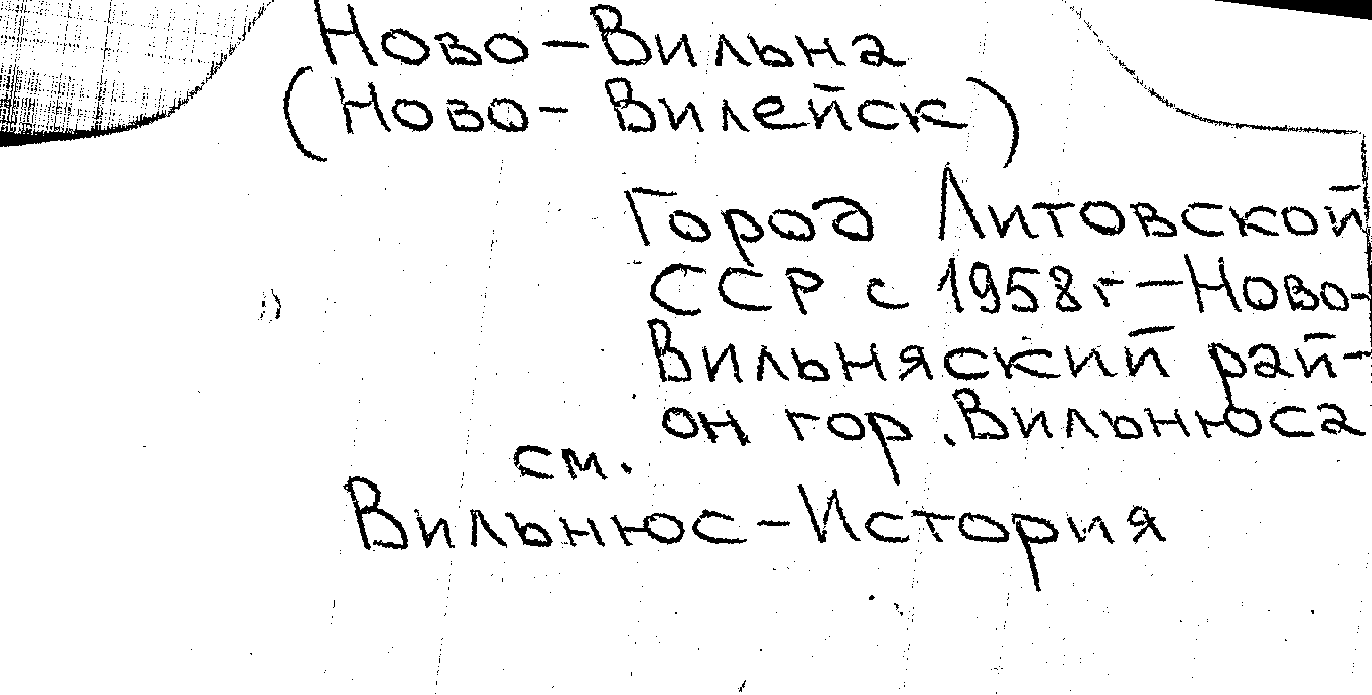 Ново-Вильна
(Ново-Вилейск)
Город Литовской
ССР с 1958г-Ново-
Вильняский рай-
он гор. Вильнюса
см.
Вильнюс-История